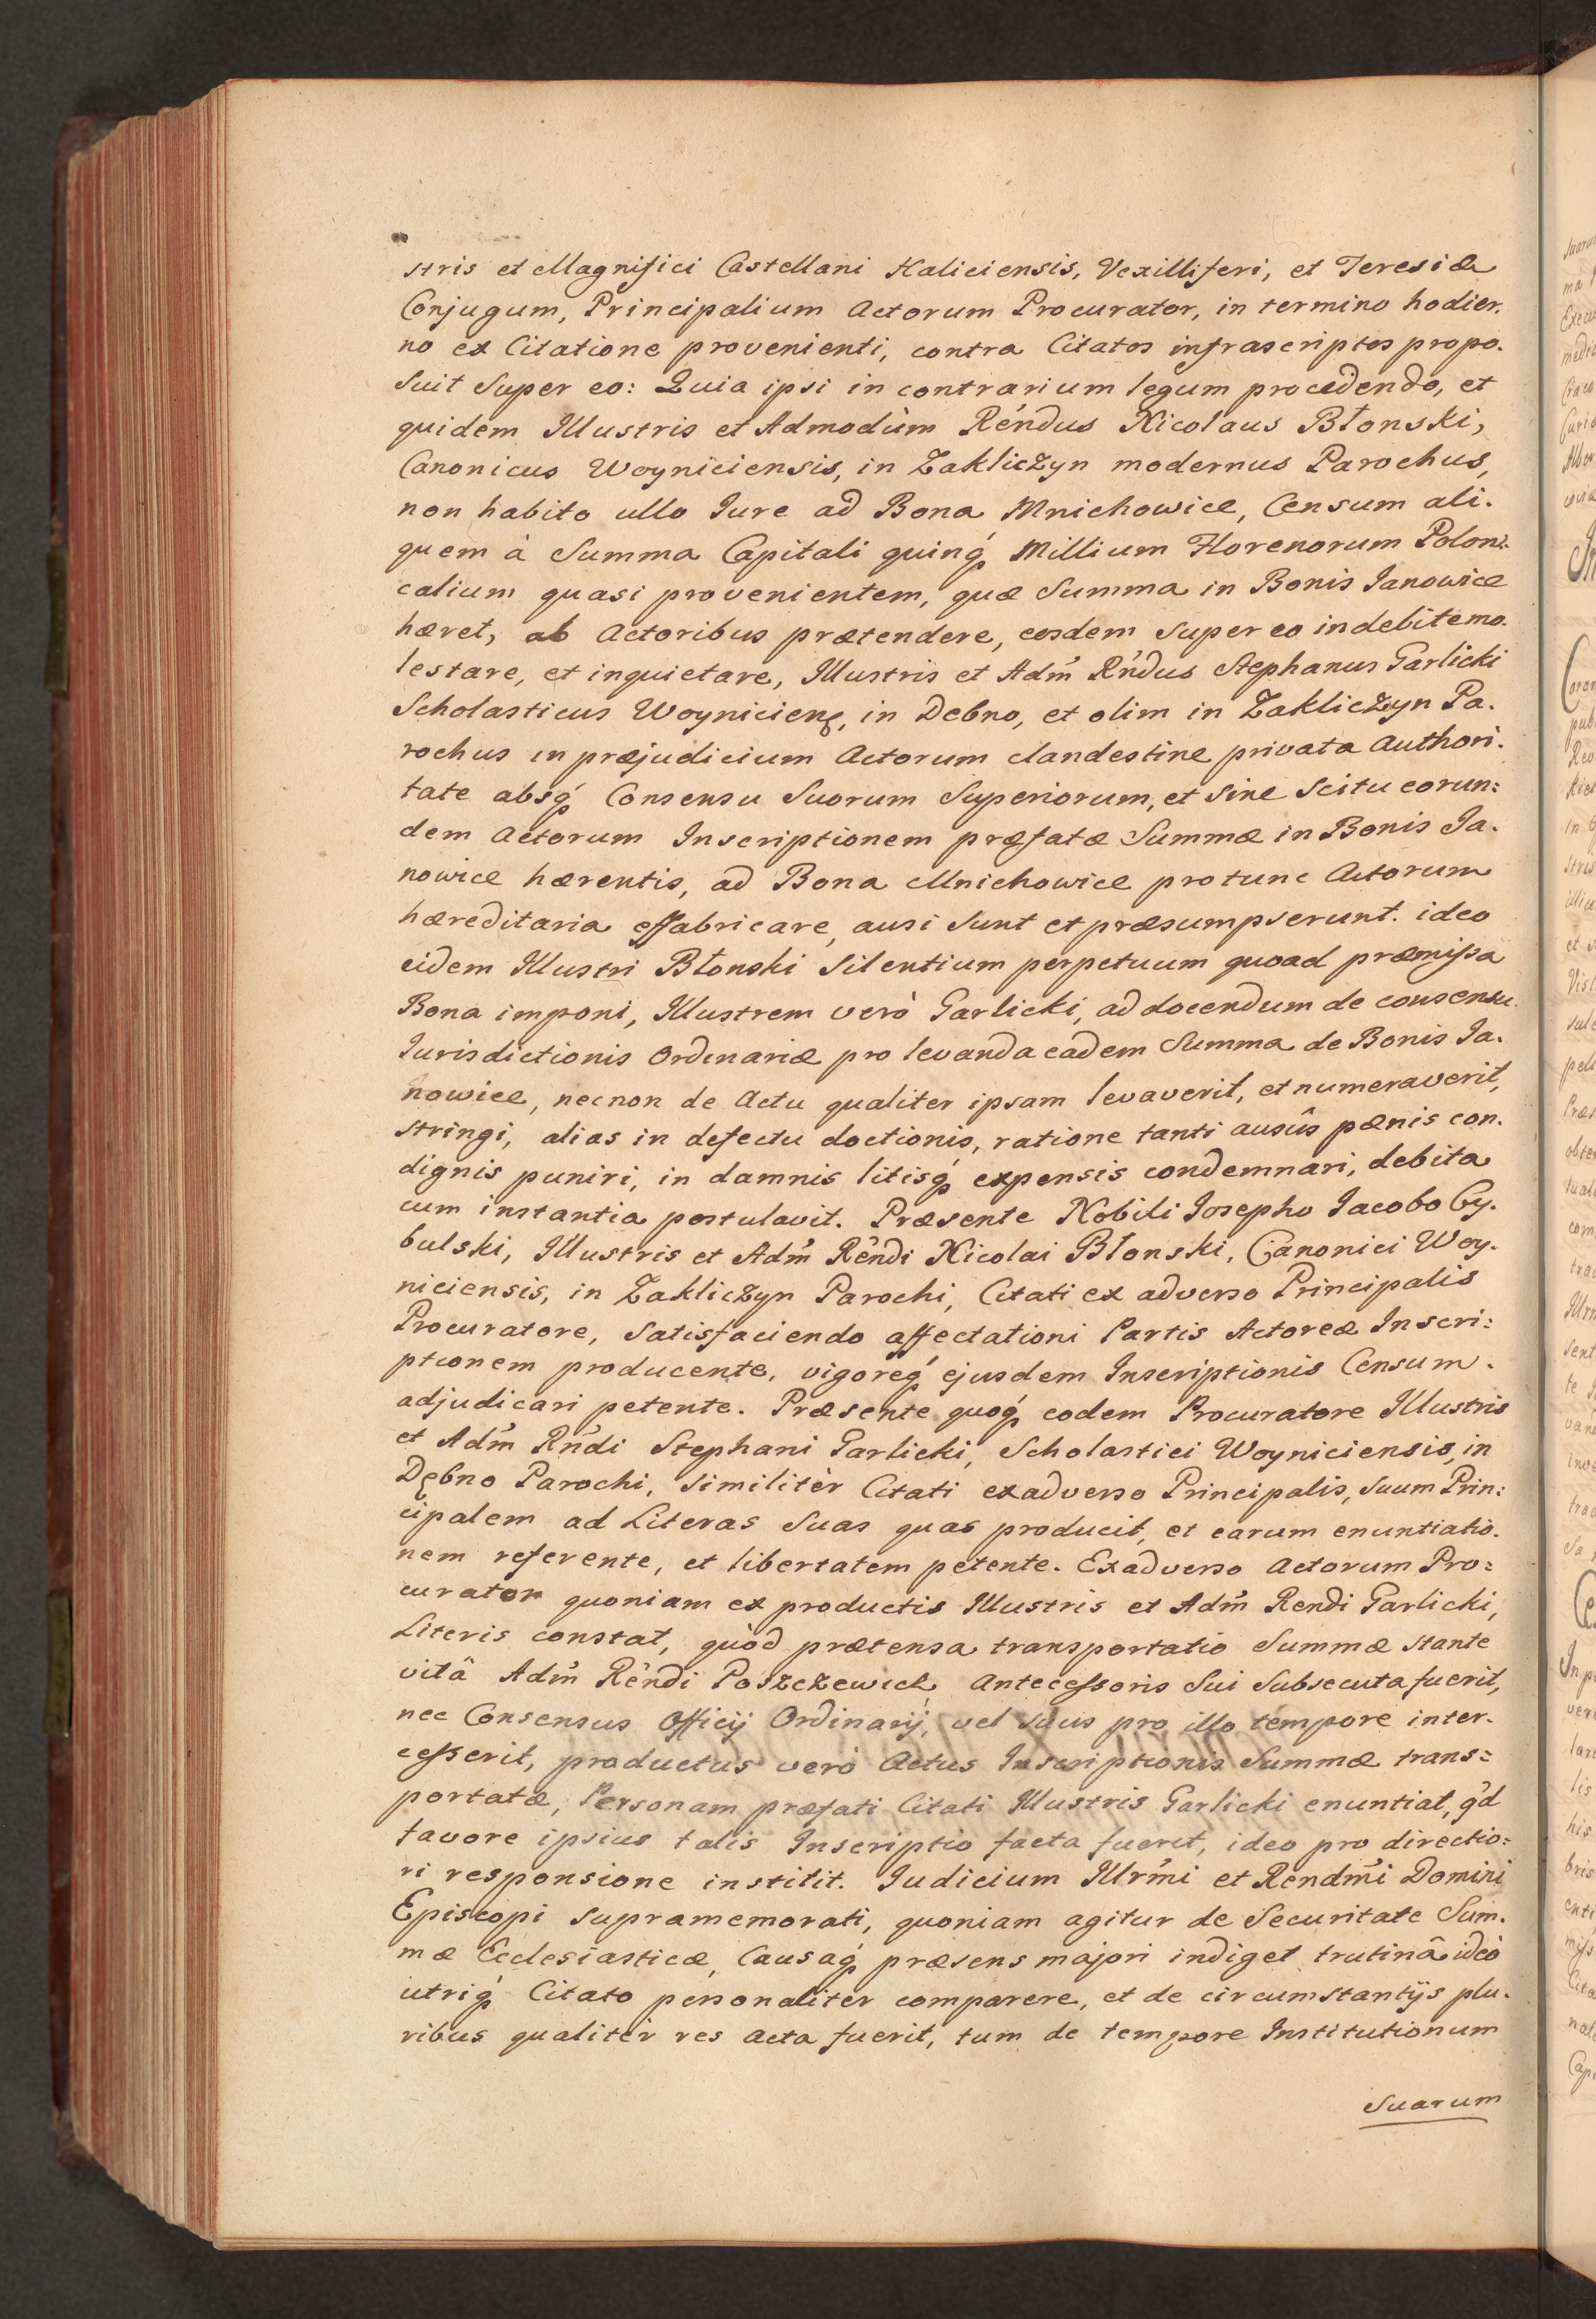 stris et Magnifici Castellani Haliciensis, Vexilliferi, et Teresiæ
Conjugum, Principalium Actorum Procurator, in termino hodier.
no ex Citatione provenienti, contra Citatos infrascriptos propo.
suit super eo: Quia ipsi in contrarium legum procedendo, et
quidem Illustris et Admodùm Rḗndus Nicolaus Błonski,
Canonicus Woyniciensis, in Zakliczyn modernus Parochus,
non habito ullo Jure ad Bona Mnichowice, Censum ali.
quem à Summa Capitali quinq́ Millium Florenorum Poloni.
calium quasi provenientem, quæ Summa in Bonis Janowice
hæret, ab Actoribus prætendere, eosdem super eo indebite mo.
lestare, et inquietare, Illustris et Adm̃ Rńdus Stephanus Garlicki
Scholasticus Woynicienę, in Debno, et olim in Zakliczyn Pa.
rochus in præjudicium Actorum clandestine privata Authori.
tate absq́ Consensu Suorum Superiorum, et sine scitu eorun:
dem Actorum Inscriptionem præfatæ Summæ in Bonis Ja.
nowice hærentis, ad Bona Mnichowice protunc Actorum
hæreditaria effabricare, ausi sunt et præsumpserunt. ideo
eidem Illustri Błonski silentium perpetuum quoad præmissa
Bona imponi, Illustrem verò Garlicki, ad docendum de consensu
Jurisdictionis Ordinariæ pro levanda eadem Summa de Bonis Ja.
nowice, necnon de Actu qualiter ipsam levaverit, et numeraverit,
stringi, alias in defectu doctionis, ratione tanti ausûs pænis con.
dignis puniri, in damnis litisq́ expensis condemnari, debita
cum instantia postulavit. Præsente Nobili Josepho Jacobo Cy.
bulski, Illustris et Adm̃ Rḗndi Nicolai Błonski, Canonici Woy.
niciensis, in Zakliczyn Parochi, Citati ex adverso Principalis
Procuratore, satisfaciendo affectationi Partis Actoreæ Inscri:
ptionem producente, vigoreq́ ejusdem Inscriptionis Censum.
adjudicari petente. Præsente quoq́ eodem Procuratore Illustris
et Adm̃ Rńdi Stephani Garlicki, Scholastici Woyniciensis, in
Dębno Parochi, similitèr Citati exadverso Principalis, suum Prin:
cipalem ad Literas suas quas producit, et earum enuntiatio.
nem referente, et libertatem petente. Exadverso Actorum Pro:
curator quoniam ex productis Illustris et Adm̃ Rendi Garlicki,
Literis constat, quòd prætensa transportatio Summæ stante
vitâ Adm̃ Rḗndi Poszczewicz Antecessoris sui subsecuta fuerit,
nec Consensus Officij Ordinarij, vel suus pro illo tempore inter.
cesserit, productus verò Actus Inscriptionis Summæ trans:
portatæ, Personam præfati Citati Illustris Garlicki enuntiat, q́d
favore ipsius talis Inscriptio facta fuerit, ideo pro directio:
ri responsione institit. Judicium Illrm̃i et Rendm̃i Domini
Episcopi supramemorati, quoniam agitur de Securitate Sum.
mæ Ecclesiasticæ, Causaq́ præsens majori indiget trutinâ ideò
utriq́ Citato personaliter comparere, et de circumstantijs plu.
ribus qualitèr res acta fuerit, tum de tempore Institutionum
Suarum